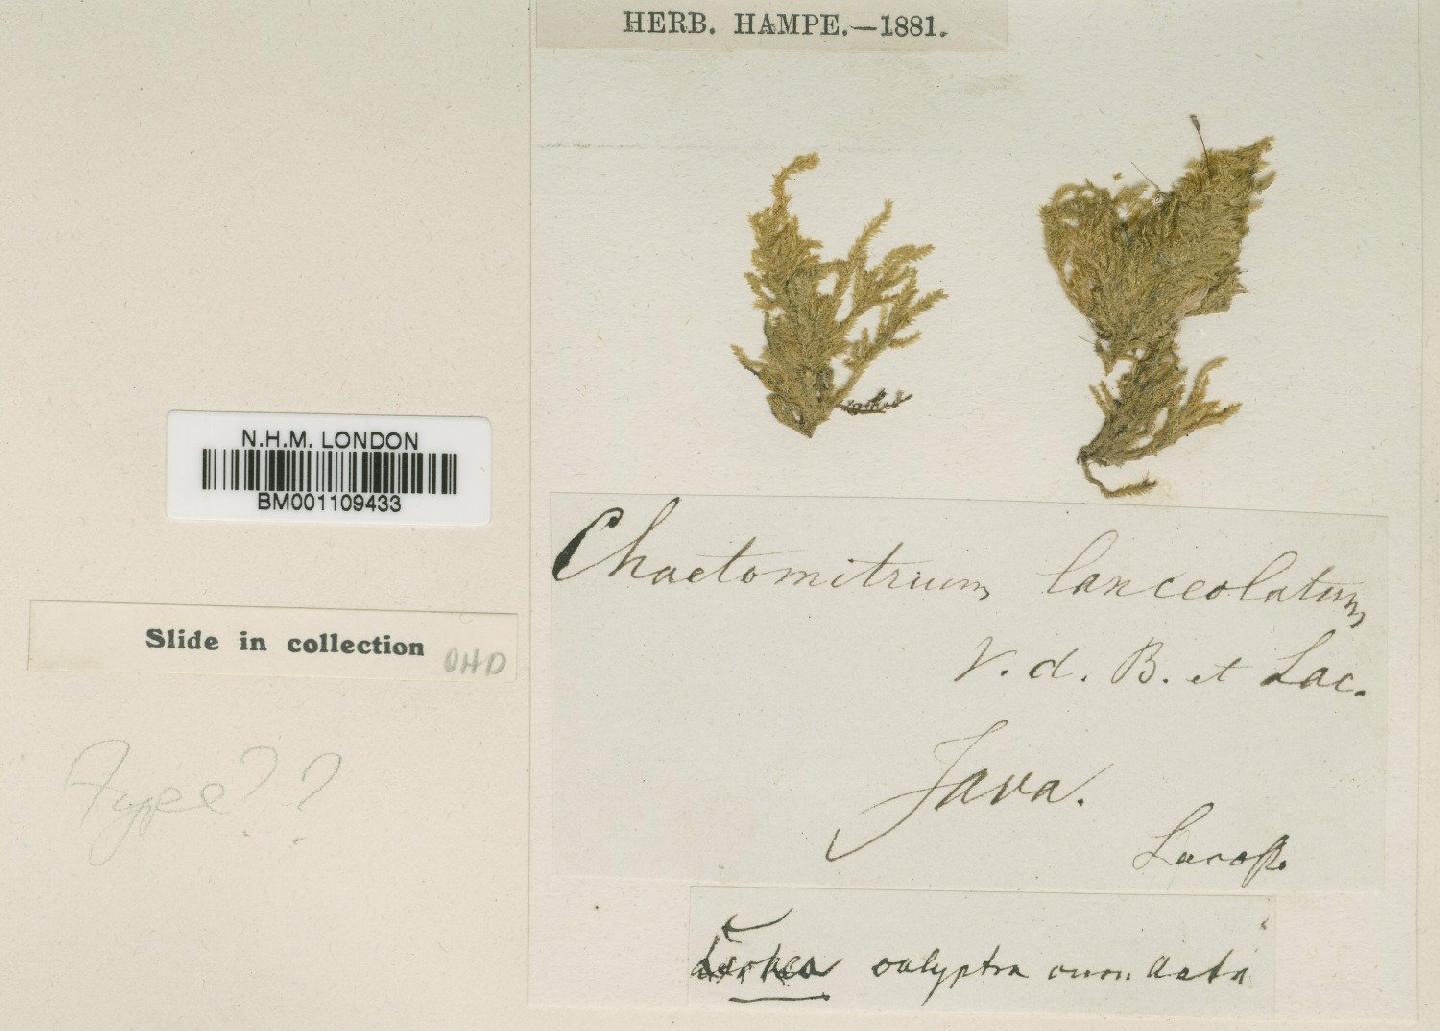 HERB. HAMPE.—1881.
N.H.M. LONDON
BM001109433
Chaetomitrium lanceolatum
V. d. B. et Lac.
Java.
Slide in collection
OHD
Type??
calyptra